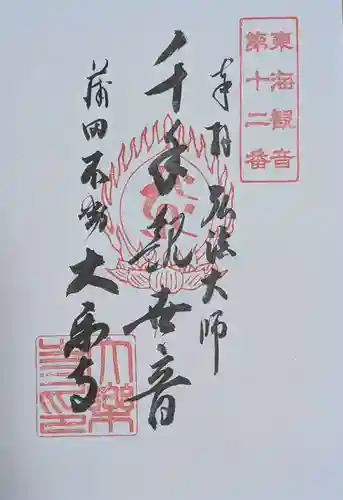 東海観音
第十二番
奉拝 弘法大師
千手観世音
蒲田不動 大楽寺